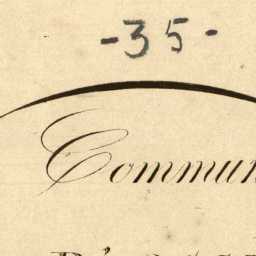 -35-
Commun